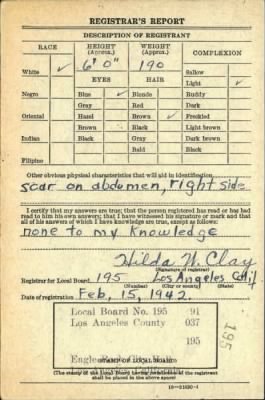 REGISTRAR'S REPORT
DESCRIPTION OF REGISTRANT
RACE HEIGHT (Approx.) WEIGHT (Approx.) COMPLEXION
White ✓ 6' 0" 190 Sallow
Light ✓
EYES HAIR
Negro Blue ✓ Blonde Ruddy
Gray Red Dark
Oriental Hazel Brown ✓ Freckled
Brown Black Light brown
Indian Black Gray Dark brown
Bald Black
Filipino
Other obvious physical characteristics that will aid in identification
scar on abdomen, right side
I certify that my answers are true; that the person registered has read or has had
read to him his own answers; that I have witnessed his signature or mark and that
all of his answers of which I have knowledge are true, except as follows:
none to my knowledge
Hilda W. Clay
(Signature of registrar)
Registrar for Local Board 195 Los Angeles Calif
(Number) (City or county) (State)
Date of registration Feb, 15, 1942.
Local Board No. 195 91
Los Angeles County 037
195
195
STAMP OF LOCAL BOARD
(The stamp of the Local Board having jurisdiction of the registrant
shall be placed in the above space)